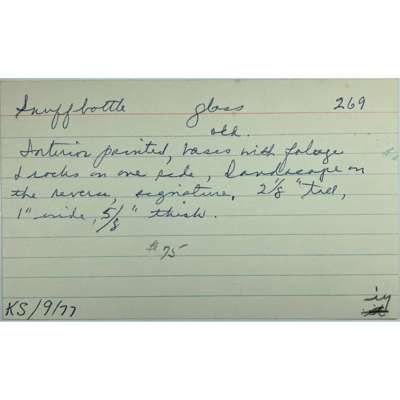 Snuffbottle glass 269
old.
Interior painted, vases with foliage
& rocks on one side, Landscape on
the reverse, signature, 2 1/8" tall,
1" wide, 5/8" thick.
#75
KS/9/77 iy